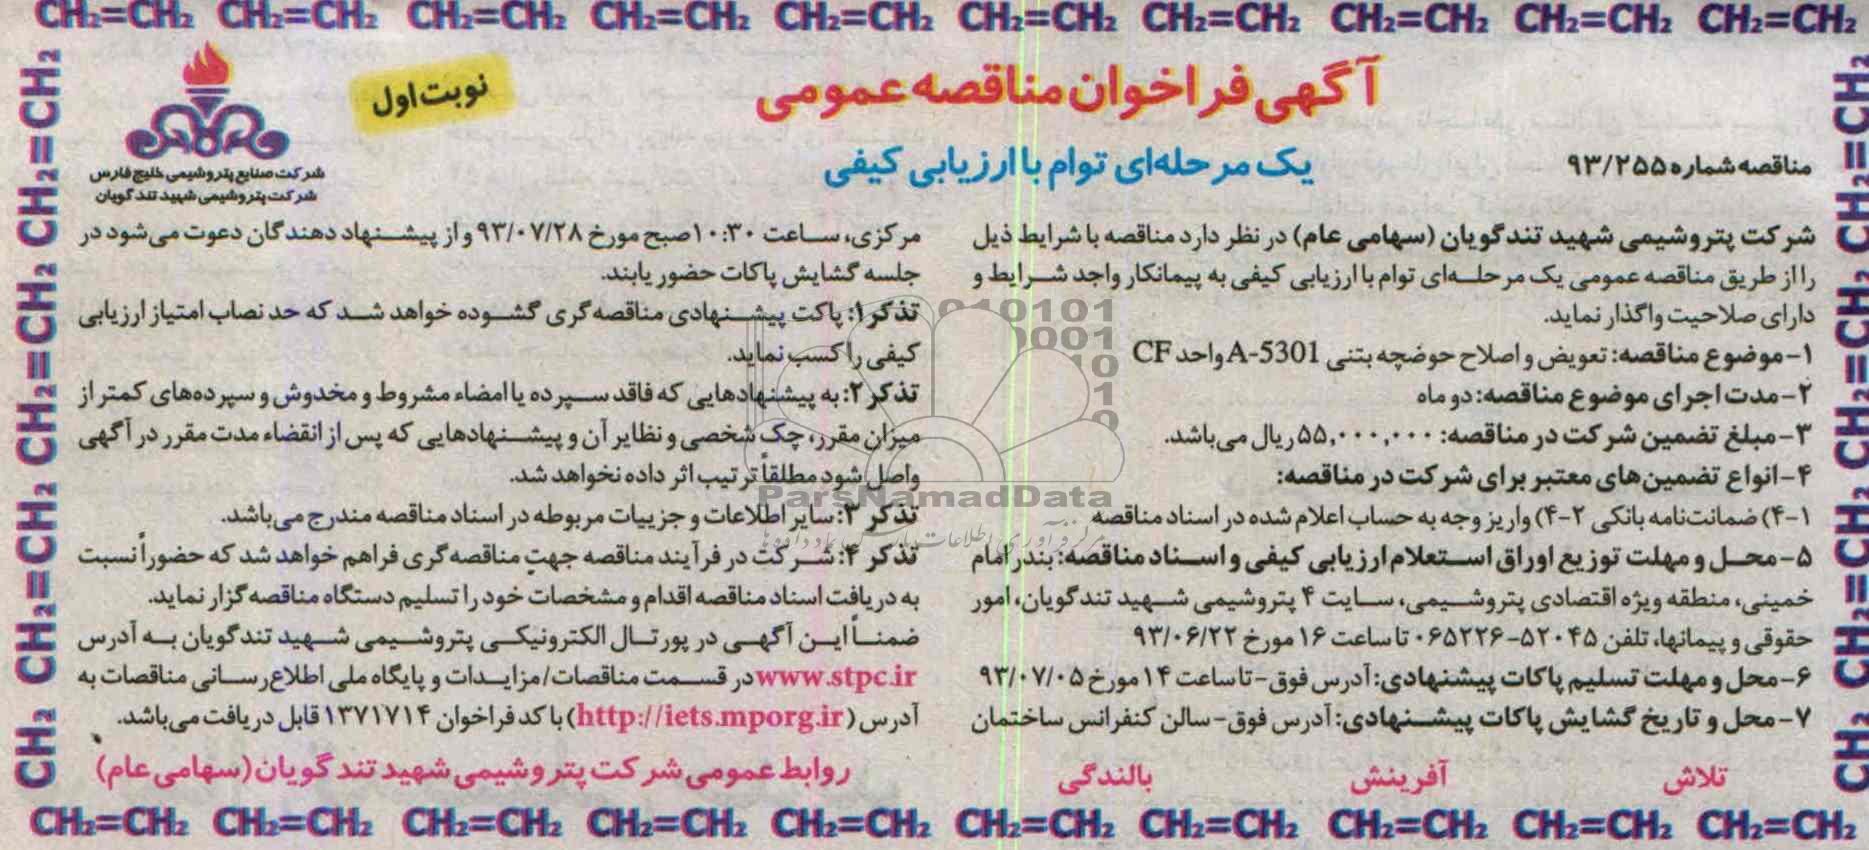 CH₂=CH₂ CH₂=CH₂ CH₂=CH₂ CH₂=CH₂ CH₂=CH₂ CH₂=CH₂ CH₂=CH₂ CH₂=CH₂ CH₂=CH₂ CH₂=CH₂
آگهی فراخوان مناقصه عمومی
نوبت اول
یک مرحله‌ای توام با ارزیابی کیفی
مناقصه شماره ۹۳/۲۵۵
شرکت صنایع پتروشیمی خلیج فارس
شرکت پتروشیمی شهید تندگویان
شرکت پتروشیمی شهید تندگویان (سهامی عام) در نظر دارد مناقصه با شرایط ذیل
را از طریق مناقصه عمومی یک مرحله‌ای توام با ارزیابی کیفی به پیمانکار واجد شرایط و
دارای صلاحیت واگذار نماید.
۱-موضوع مناقصه: تعویض و اصلاح حوضچه بتنی A-5301 واحد CF
۲-مدت اجرای موضوع مناقصه: دو ماه
۳-مبلغ تضمین شرکت در مناقصه: ۵۵,۰۰۰,۰۰۰ ریال می‌باشد.
۴-انواع تضمین‌های معتبر برای شرکت در مناقصه:
۴-۱) ضمانت‌نامه بانکی ۴-۲) واریز وجه به حساب اعلام شده در اسناد مناقصه
۵-محل و مهلت توزیع اوراق استعلام ارزیابی کیفی و اسناد مناقصه: بندر امام
خمینی، منطقه ویژه اقتصادی پتروشیمی، سایت ۴ پتروشیمی شهید تندگویان، امور
حقوقی و پیمانها، تلفن ۵۲۰۴۵-۰۶۵۲۲۶ تا ساعت ۱۶ مورخ ۹۳/۰۶/۲۲
۶-محل و مهلت تسلیم پاکات پیشنهادی: آدرس فوق-تا ساعت ۱۴ مورخ ۹۳/۰۷/۰۵
۷-محل و تاریخ گشایش پاکات پیشنهادی: آدرس فوق-سالن کنفرانس ساختمان
مرکزی، ساعت ۱۰:۳۰ صبح مورخ ۹۳/۰۷/۲۸ و از پیشنهاد دهندگان دعوت می‌شود در
جلسه گشایش پاکات حضور یابند.
تذکر ۱: پاکت پیشنهادی مناقصه‌گری گشوده خواهد شد که حد نصاب امتیاز ارزیابی
کیفی را کسب نماید.
تذکر ۲: به پیشنهادهایی که فاقد سپرده یا امضاء مشروط و مخدوش و سپرده‌های کمتر از
میزان مقرر، چک شخصی و نظایر آن و پیشنهادهایی که پس از انقضاء مدت مقرر در آگهی
واصل شود مطلقاً ترتیب اثر داده نخواهد شد.
تذکر ۳: سایر اطلاعات و جزییات مربوطه در اسناد مناقصه مندرج می‌باشد.
تذکر ۴: شرکت در فرآیند مناقصه جهت مناقصه‌گری فراهم خواهد شد که حضوراً نسبت
به دریافت اسناد مناقصه اقدام و مشخصات خود را تسلیم دستگاه مناقصه‌گزار نماید.
ضمناً این آگهی در پورتال الکترونیکی پتروشیمی شهید تندگویان به آدرس
www.stpc.ir در قسمت مناقصات/مزایدات و پایگاه ملی اطلاع‌رسانی مناقصات به
آدرس (http://iets.mporg.ir) با کد فراخوان ۱۳۷۱۷۱۴ قابل دریافت می‌باشد.
تلاش آفرینش بالندگی
روابط عمومی شرکت پتروشیمی شهید تندگویان (سهامی عام)
CH₂=CH₂ CH₂=CH₂ CH₂=CH₂ CH₂=CH₂ CH₂=CH₂ CH₂=CH₂ CH₂=CH₂ CH₂=CH₂ CH₂=CH₂ CH₂=CH₂
CH₂ CH₂=CH₂ CH₂=CH₂ CH₂=CH₂
CH₂ CH₂=CH₂ CH₂=CH₂ CH₂=CH₂
ParsNamadData